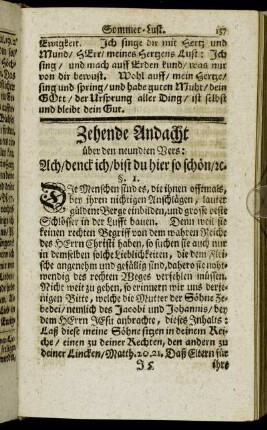 Sommer-Lust. 157
Ewigkeit. Ich singe dir mit Hertz und
Mund/ HErr/ meines Hertzens Lust: Ich
sing/ und mach auff Erden kund/ was mir
von dir bewust. Wohl auff/ mein Hertze/
sing und spring/ und habe guten Muht/ dein
GOtt/ der Ursprung aller Ding/ ist selbst
und bleibt dein Gut.
Zehende Andacht
über den neundten Vers:
Ach/ denck ich/ bist du hier so schön/ ꝛc.
§. 1.
DIe Menschen sind es, die ihnen offtmals,
bey ihren nichtigen Anschlägen, lauter
güldene Berge einbilden, und grosse veste
Schlösser in der Lufft bauen. Denn weil sie
keinen rechten Begriff von dem wahren Reich
des HErrn Christi haben, so suchen sie auch nur
in demselben solche Lieblichkeiten, die dem Flei-
sche angenehm und gefällig sind, daher sie noht-
wendig des rechten Weges verfehlen müssen.
Nicht weit zu gehen, so erinnern wir uns derje-
nigen Bitte, welche die Mutter der Söhne Ze-
bedei/ nemlich des Jacobi und Johannis, bey
dem HErrn JEsu anbrachte, dieses Inhalts:
Laß diese meine Söhne sitzen in deinem Rei-
che/ einen zu deiner Rechten, den andern zu
deiner Lincken/ Matth. 20. 21. Daß Eltern für
ihre